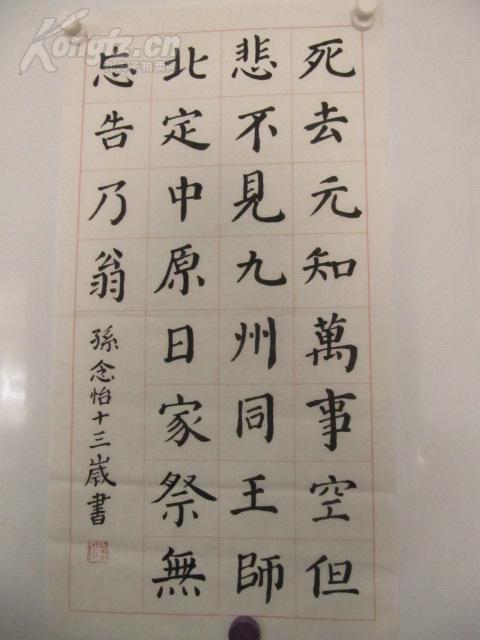 死去元知萬事空但
悲不見九州同王師
北定中原日家祭無
忘告乃翁
孫念怡十三歲書
Kongfz.cn